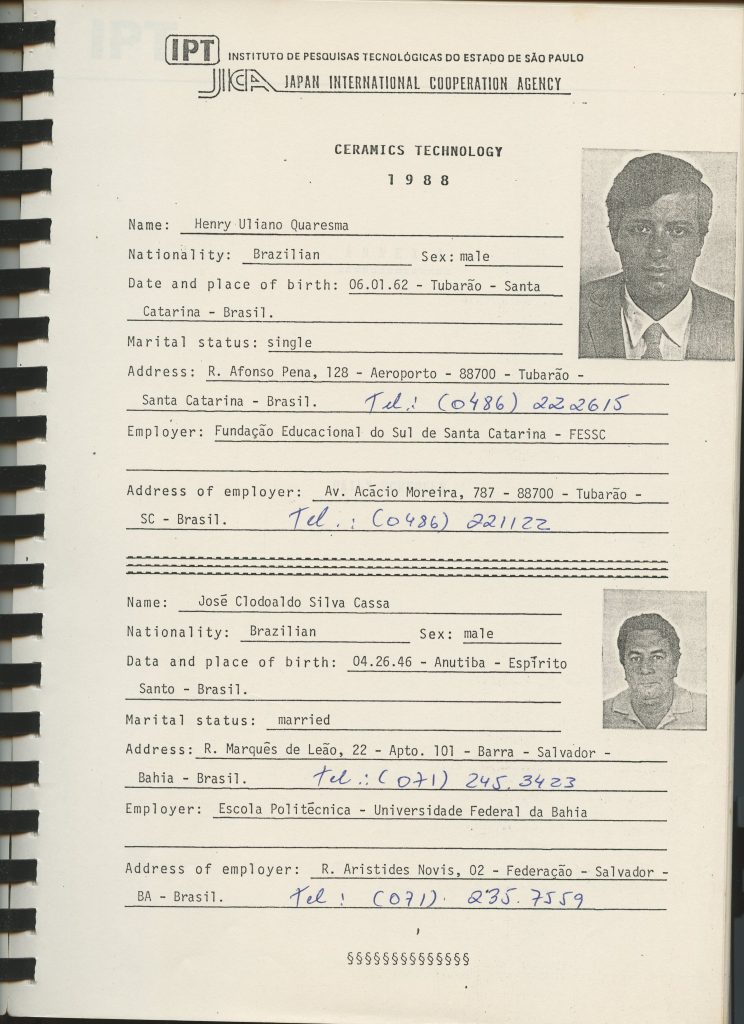 IPT INSTITUTO DE PESQUISAS TECNOLÓGICAS DO ESTADO DE SÃO PAULO
JICA JAPAN INTERNATIONAL COOPERATION AGENCY
CERAMICS TECHNOLOGY
1988
Name: Henry Uliano Quaresma
Nationality: Brazilian Sex: male
Date and place of birth: 06.01.62 - Tubarão - Santa
Catarina - Brasil.
Marital status: single
Address: R. Afonso Pena, 128 - Aeroporto - 88700 - Tubarão -
Santa Catarina - Brasil. Tel.: (0486) 222615
Employer: Fundação Educacional do Sul de Santa Catarina - FESSC
Address of employer: Av. Acácio Moreira, 787 - 88700 - Tubarão -
SC - Brasil. Tel.: (0486) 221122
Name: José Clodoaldo Silva Cassa
Nationality: Brazilian Sex: male
Data and place of birth: 04.26.46 - Anutiba - Espírito
Santo - Brasil.
Marital status: married
Address: R. Marquês de Leão, 22 - Apto. 101 - Barra - Salvador -
Bahia - Brasil. Tel.: (071) 245.3423
Employer: Escola Politécnica - Universidade Federal da Bahia
Address of employer: R. Aristides Novis, 02 - Federação - Salvador -
BA - Brasil. Tel: (071). 235.7559
§§§§§§§§§§§§§§